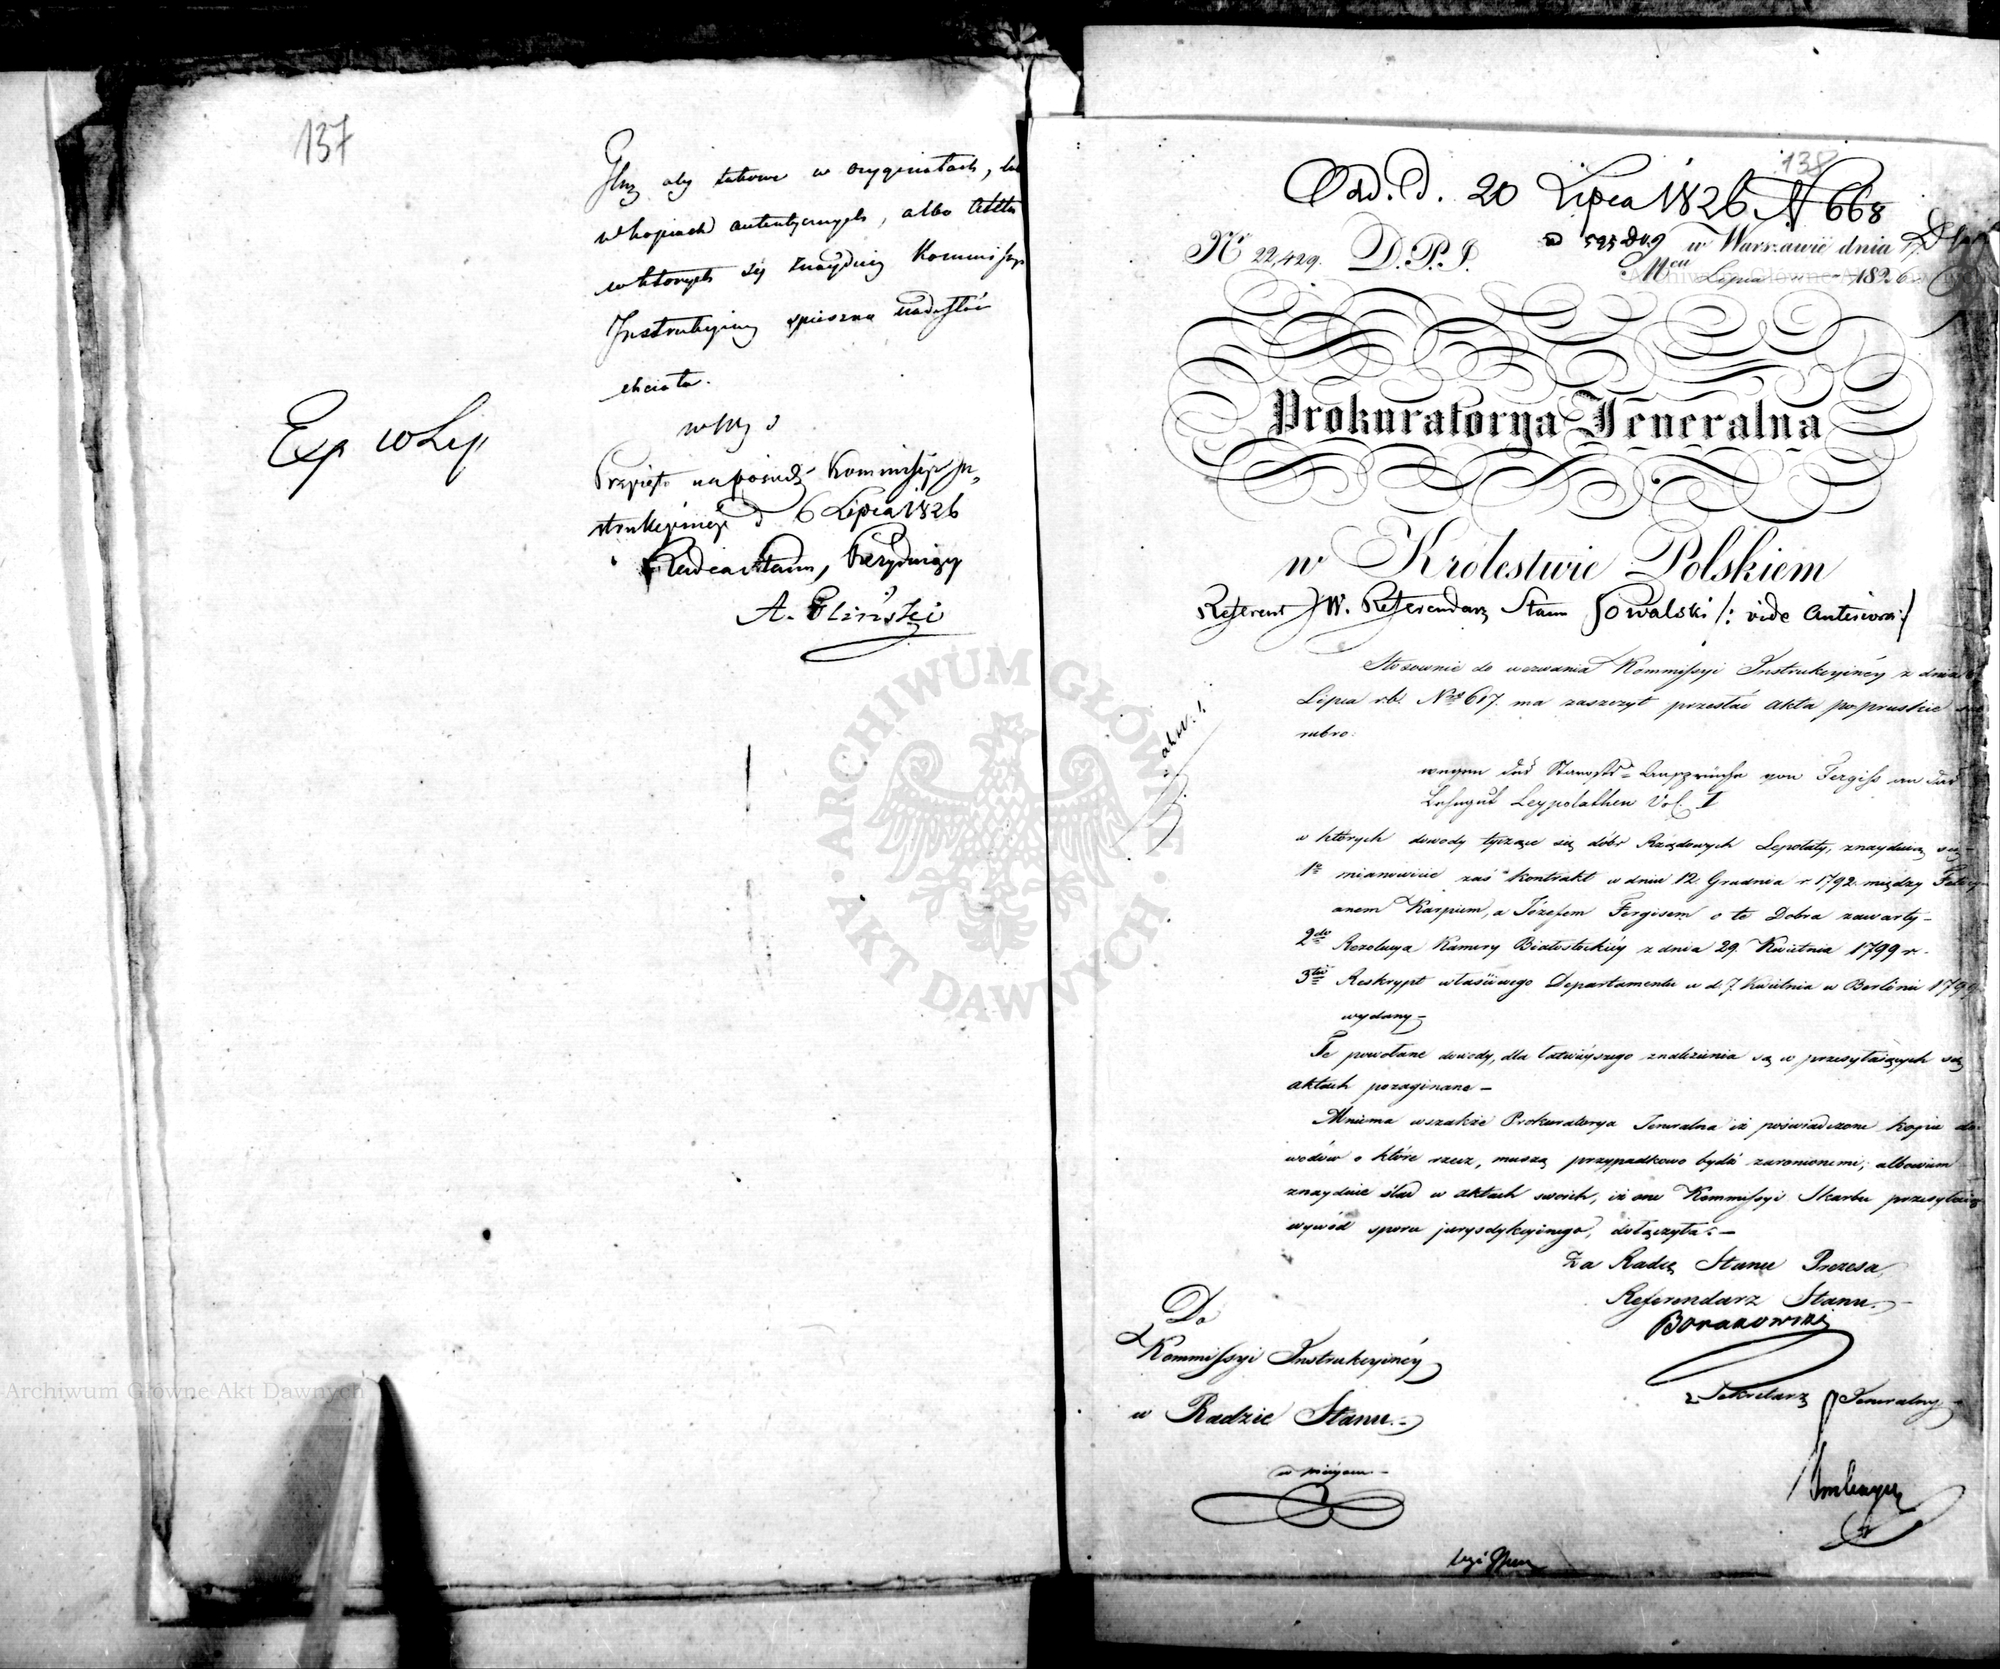 137
aby takowe w oryginałach, lub
w kopiach autentycznych, albo
w których się znayduią Kommissyi
Instrukcyiney spieszno nadesłać
chciała.
Przyięto na posiedz. Kommissyi In-
strukcyiney d 6 Lipca 1826
Radca Stanu, Prezyduiący
A. Gliński
Exp w Lip
138
Odd. d. 20 Lipca 1826 N 668
Nr 22,429. D.P.J.
w Warszawie dnia 17.
Mca Lipca 1826
Prokuratorya Jeneralna
w Królestwie Polskiem
Referent JW. Referendarz Stanu /: vide anteriora :/
Stosownie do wezwania Kommissyi Instrukcyiney z dnia 6
Lipca r.b. No 617. ma zaszczyt przesłać akta popruskie sub
rubro:
wegen von Fergiss an das
Lehngut Leypolathen Vol. I
w których dowody tyczące się dóbr Rządowych Lepołaty, znayduią się –
1o mianowicie zaś kontrakt w dniu 12. Grudnia r. 1792. między Felicy-
anem Karpiem, a Józefem Fergisem o te Dobra zawarty –
2do Rezolucya Kamery Białostockiey z dnia 29. Kwietnia 1799 r. –
3tio Reskrypt właściwego Departamentu w d. 7. Kwietnia w Berlinie 1799
wydany –
Te powołane dowody, dla łatwieyszego znalezienia są w przesyłaiących się
aktach pozaginane –
Mniema wszakże Prokuratorya Jeneralna iż poświadczone kopie do-
wodów o które rzecz, muszą przypadkowo bydź zaronionemi; albowiem
znayduie ślad w aktach swoich, iż one Kommissyi Skarbu przesyłaiąc
wywód sporu jurysdykcyinego, dołączyła. –
Za Radcę Stanu Prezesa,
Referendarz Stanu.
Sekretarz Jeneralny
Do
Kommissyi Instrukcyiney
w Radzie Stanu. –
w mieyscu –
ARCHIWUM GŁÓWNE · AKT DAWNYCH ·
Archiwum Główne Akt Dawnych
Archiwum Główne Akt Dawnych